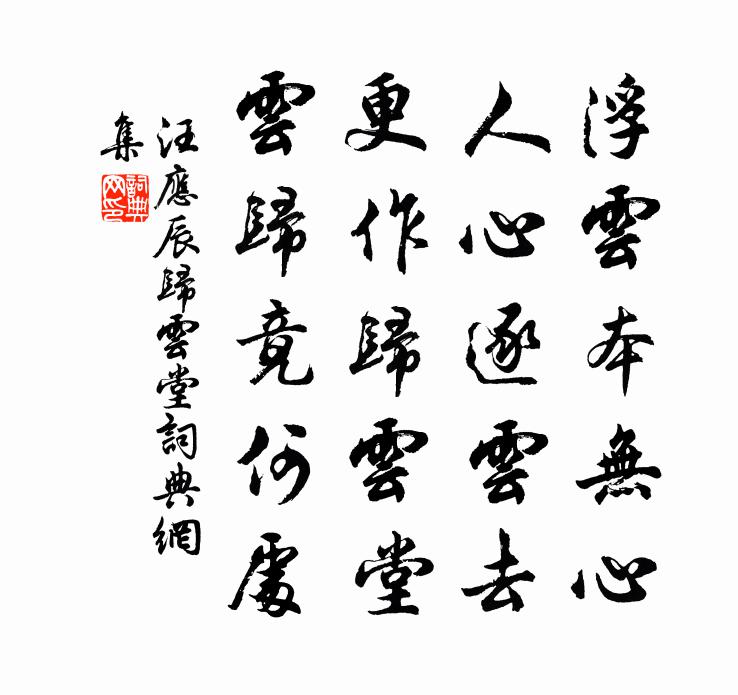 浮雲本無心
人心逐雲去
更作歸雲堂
雲歸竟何處
汪應辰歸雲堂詞典網
集
詞典
网印